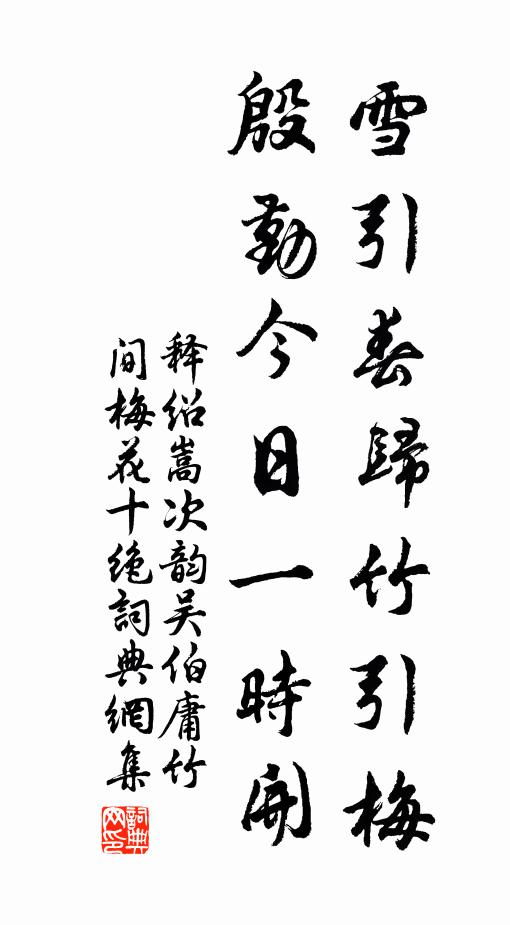 雪引春歸竹引梅
殷勤今日一時開
释绍嵩次韵吴伯庸竹
间梅花十绝詞典網集
詞典
网印